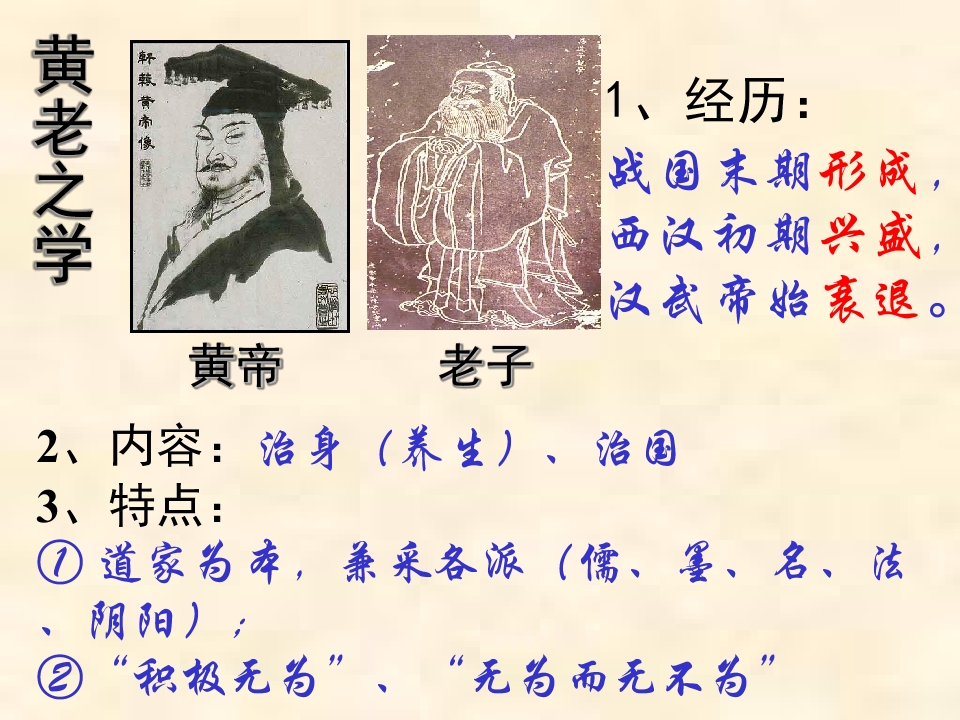 黄老之学
軒轅黄帝像
1、经历：
战国末期形成，
西汉初期兴盛，
汉武帝始衰退。
黄帝
老子
2、内容：治身（养生）、治国
3、特点：
① 道家为本，兼采各派（儒、墨、名、法
、阴阳）；
②“积极无为”、“无为而无不为”